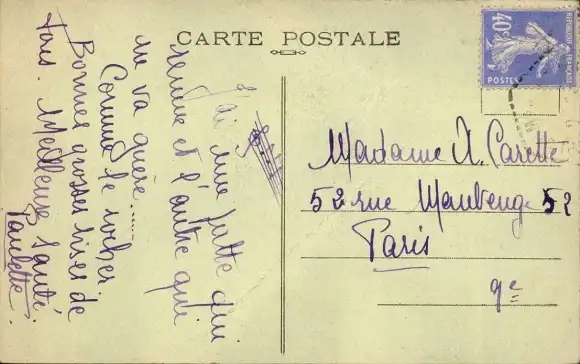 CARTE POSTALE
REPUBLIQUE FRANÇAISE
40c
POSTES
J'ai une patte qui
remue et l'autre qui
ne va guère......
Comme le rocher.
Bonnes grosses bises de
tous. Meilleure santé.
Paulette.
Madame A. Carette
52 rue Maubeuge 52
Paris
9e